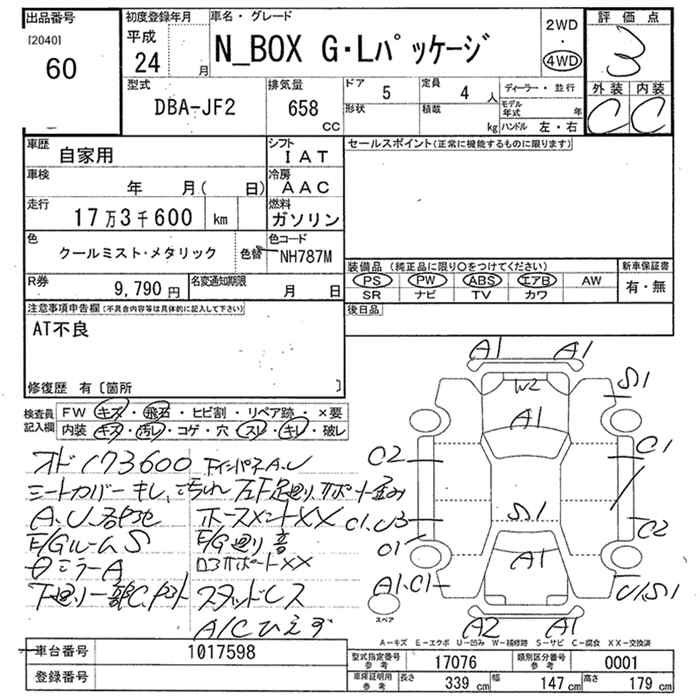 出品番号
[2040]
60
初度登録年月
平成
24 月
車名・グレード
N_BOX G・Lパッケージ
2WD
・
4WD
評価点
3
外装 内装
C C
型式
DBA-JF2
排気量
658
cc
ドア 5
形状
定員 4 人
積載 kg
ディーラー・並行
モデル年式 年
ハンドル 左・右
車歴
自家用
シフト
IAT
車検
年 月( 日)
冷房
AAC
走行
17万3千600 km
燃料
ガソリン
色
クールミスト・メタリック
色替
色コード
NH787M
R券
9,790 円
名変通知期限
月 日
セールスポイント(正常に機能するものに限ります)
装備品 (純正品に限り〇をつけてください)
新車保証書
PS PW ABS エアB AW
SR ナビ TV カワ
有・無
後日品
注意事項申告欄(不具合内容等は具体的に記入して下さい)
AT不良
修復歴 有〔箇所 〕
検査員
記入欄
FW キズ・飛石・ヒビ割・リペア跡・×要
内装 キズ・汚れ・コゲ・穴・スレ・キレ・破レ
オド173600
シートカバーキレ、汚れ
A.U.
ホースメントXX
E/GルームS
E/G廻り音
ロアサポートXX
スタッドレス
A/Cひえず
A1 A1
W2
S1
A1
C2
C1
S1
C1.U3
C2
C1
A1
A1.C1
U1.S1
スペア
A2 A1
A-キズ E-エクボ U-凹み W-補修跡 S-サビ C-腐食 XX-交換済
車台番号
1017598
登録番号
型式指定番号
参考
17076
類別区分番号
参考
0001
車庫証明用
参考
長さ 339 cm 幅 147 cm 高さ 179 cm